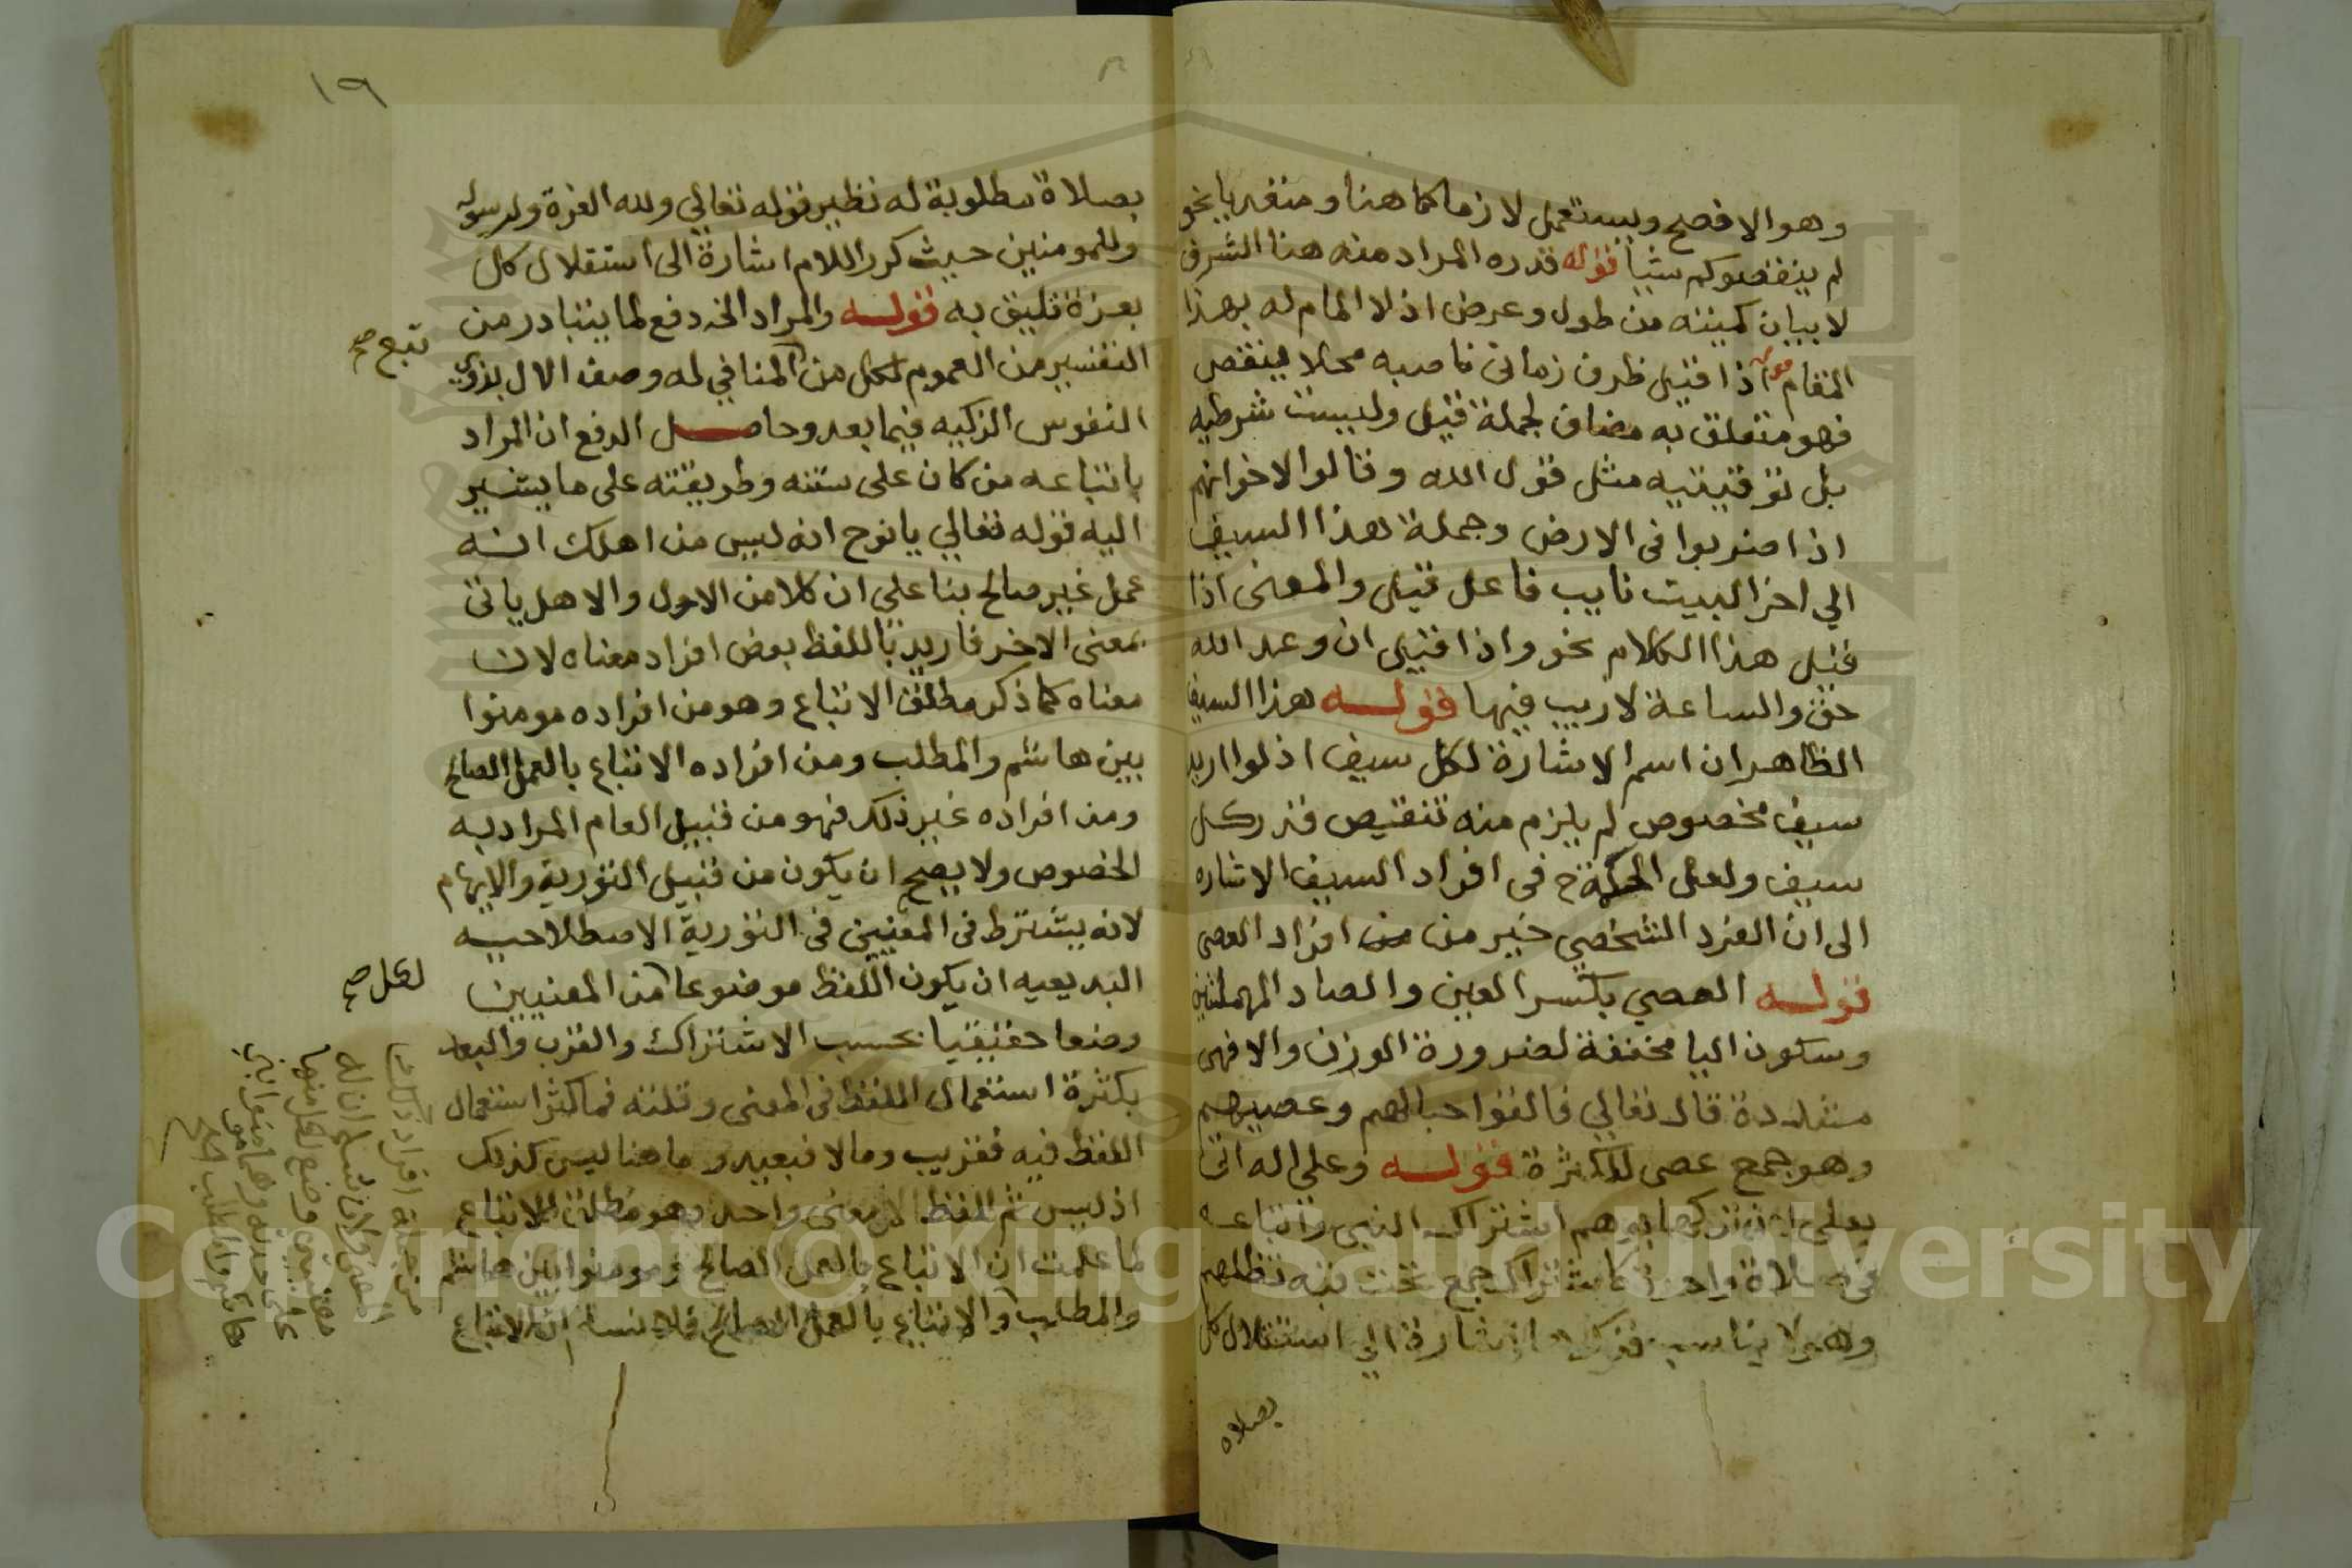 وهو الافصح ويستعمل لازما كما هنا ومتعديا نحو
لم ينقصوكم شيا قوله قدره المراد منه هنا الشرف
لا بيان كميته من طول وعرض اذ لا المام له بهذا
المقام قوله اذا قيل ظرف زماني ناصبه محلا ينقص
فهو متعلق به مضاف لجملة قيل وليست شرطيه
بل توقيتيه مثل قول الله وقالوا لاخوانهم
اذا ضربوا فى الارض وجملة هذا السيف
الي اخر البيت نايب فاعل قيل والمعنى اذا
قيل هذا الكلام نحو واذا قيل ان وعد الله
حق والساعة لا ريب فيها قوله هذا السيف
الظاهر ان اسم الاشارة لكل سيف اذ لو اريد
سيف مخصوص لم يلزم منه تنقيص قدر كل
سيف ولعل الحكمة ح فى افراد السيف الاشاره
الى ان الفرد الشخصي خير من من افراد العصى
قوله العصي بكسر العين والصاد المهملتين
وسكون اليا مخففة لضرورة الوزن والا فهى
مشددة قال تعالي فالقوا حبالهم وعصيهم
وهو جمع عصى للكثرة قوله وعلى اله اتى
بعلى لان تركها يوهم اشتراك النبي واتباعه
فى صلاة واحدة كاشتراك جمع تحت قبة تظلهم
وهو لا يناسب فذكر اشارة الي استقلال كل
بصلاه
١٩
بصلاة مطلوبة له نظير قوله تعالي ولله العزة ولرسوله
وللمومنين حيث كرر اللام اشارة الى استقلال كل
بعزة تليق به قوله والمراد الخ دفع لما يتبادر من
التفسير من العموم لكل من المنافي له وصف الال بذوي
تبع صح
النفوس الزكيه فيما بعد وحاصل الدفع ان المراد
باتباعه من كان على سنته وطريقته على ما يشير
اليه قوله تعالي يا نوح انه ليس من اهلك انه
عمل غير صالح بنا على ان كلا من الاول والاهل ياتى
بمعنى الاخر فاريد باللفظ بعض افراد معناه لان
معناه كما ذكر مطلق الاتباع وهو من افراده مومنوا
بين هاشم والمطلب ومن افراده الاتباع بالعمل الصالح
ومن افراده غير ذلك فهو من قبيل العام المراد به
الخصوص ولا يصح ان يكون من قبيل التورية والايهام
لانه يشترط فى المعنيين فى التورية الاصطلاحيه
البديعيه ان يكون اللفظ موضوعا من المعنيين
لكل صح
وضعا حقيقيا بحسب الاشتراك والقرب والبعد
بكثرة استعمال اللفظ فى المعنى وقلته فما كثر استعمال
اللفظ فيه فقريب وما لا فبعيد وما هنا ليس كذلك
اذ ليس ثم للفظ الا معنى واحد وهو مطلق الاتباع
لما علمت ان الاتباع بالعمل الصالح ومومنوا بين هاشم
والمطلب والاتباع بالعمل الصالح فلا نسلم ان الاتباع
من جملة افراد ذلك
المعنى ولان سلم ان له
معنيين وضع لكل منهما
على حدته وهما
هاشم والمطلب